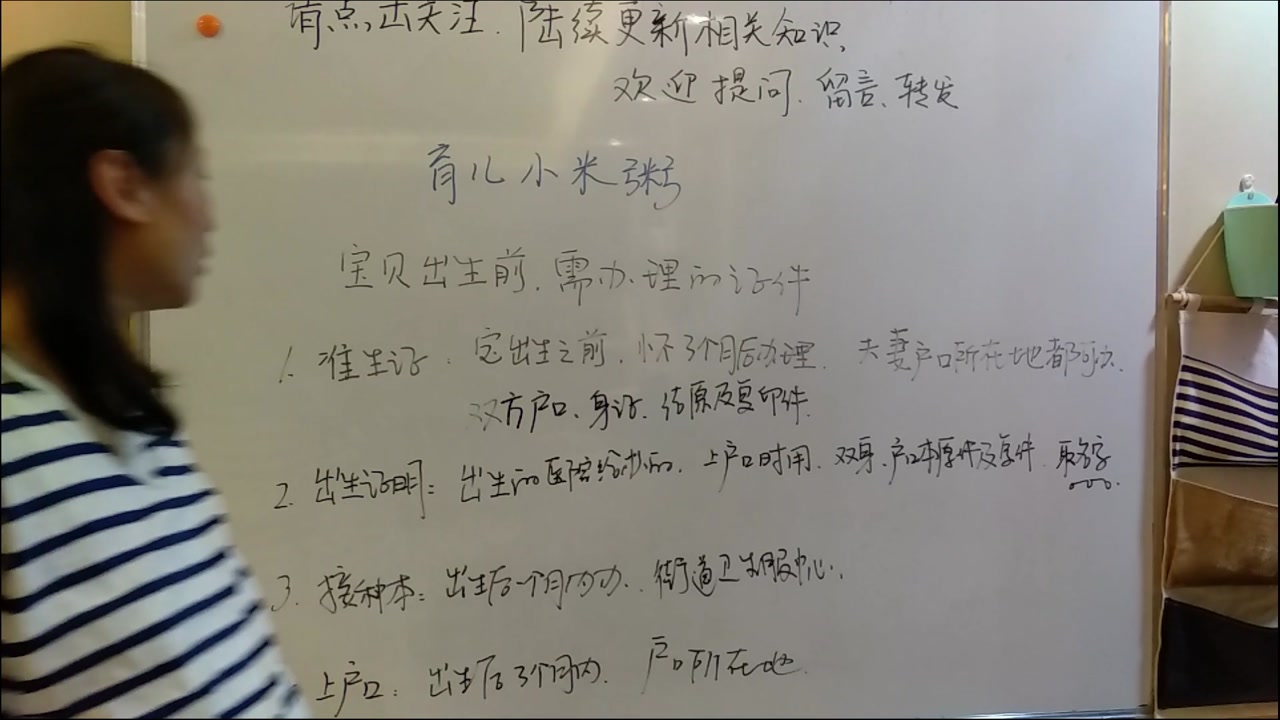 请点击关注.陆续更新相关知识,
欢迎提问.留言、转发
育儿小米粥
宝贝出生前.需办理的证件
1. 准生证:宝出生之前.怀3个月后办理. 夫妻户口所在地都可以.
双方户口、身证.结原及复印件.
2. 出生证明:出生的医院给办的.上户口时用.双身.户口本原件及复件.取名字
3. 接种本:出生后一个月内办.街道卫生服中心.
上户口:出生后3个月内. 户口所在地.